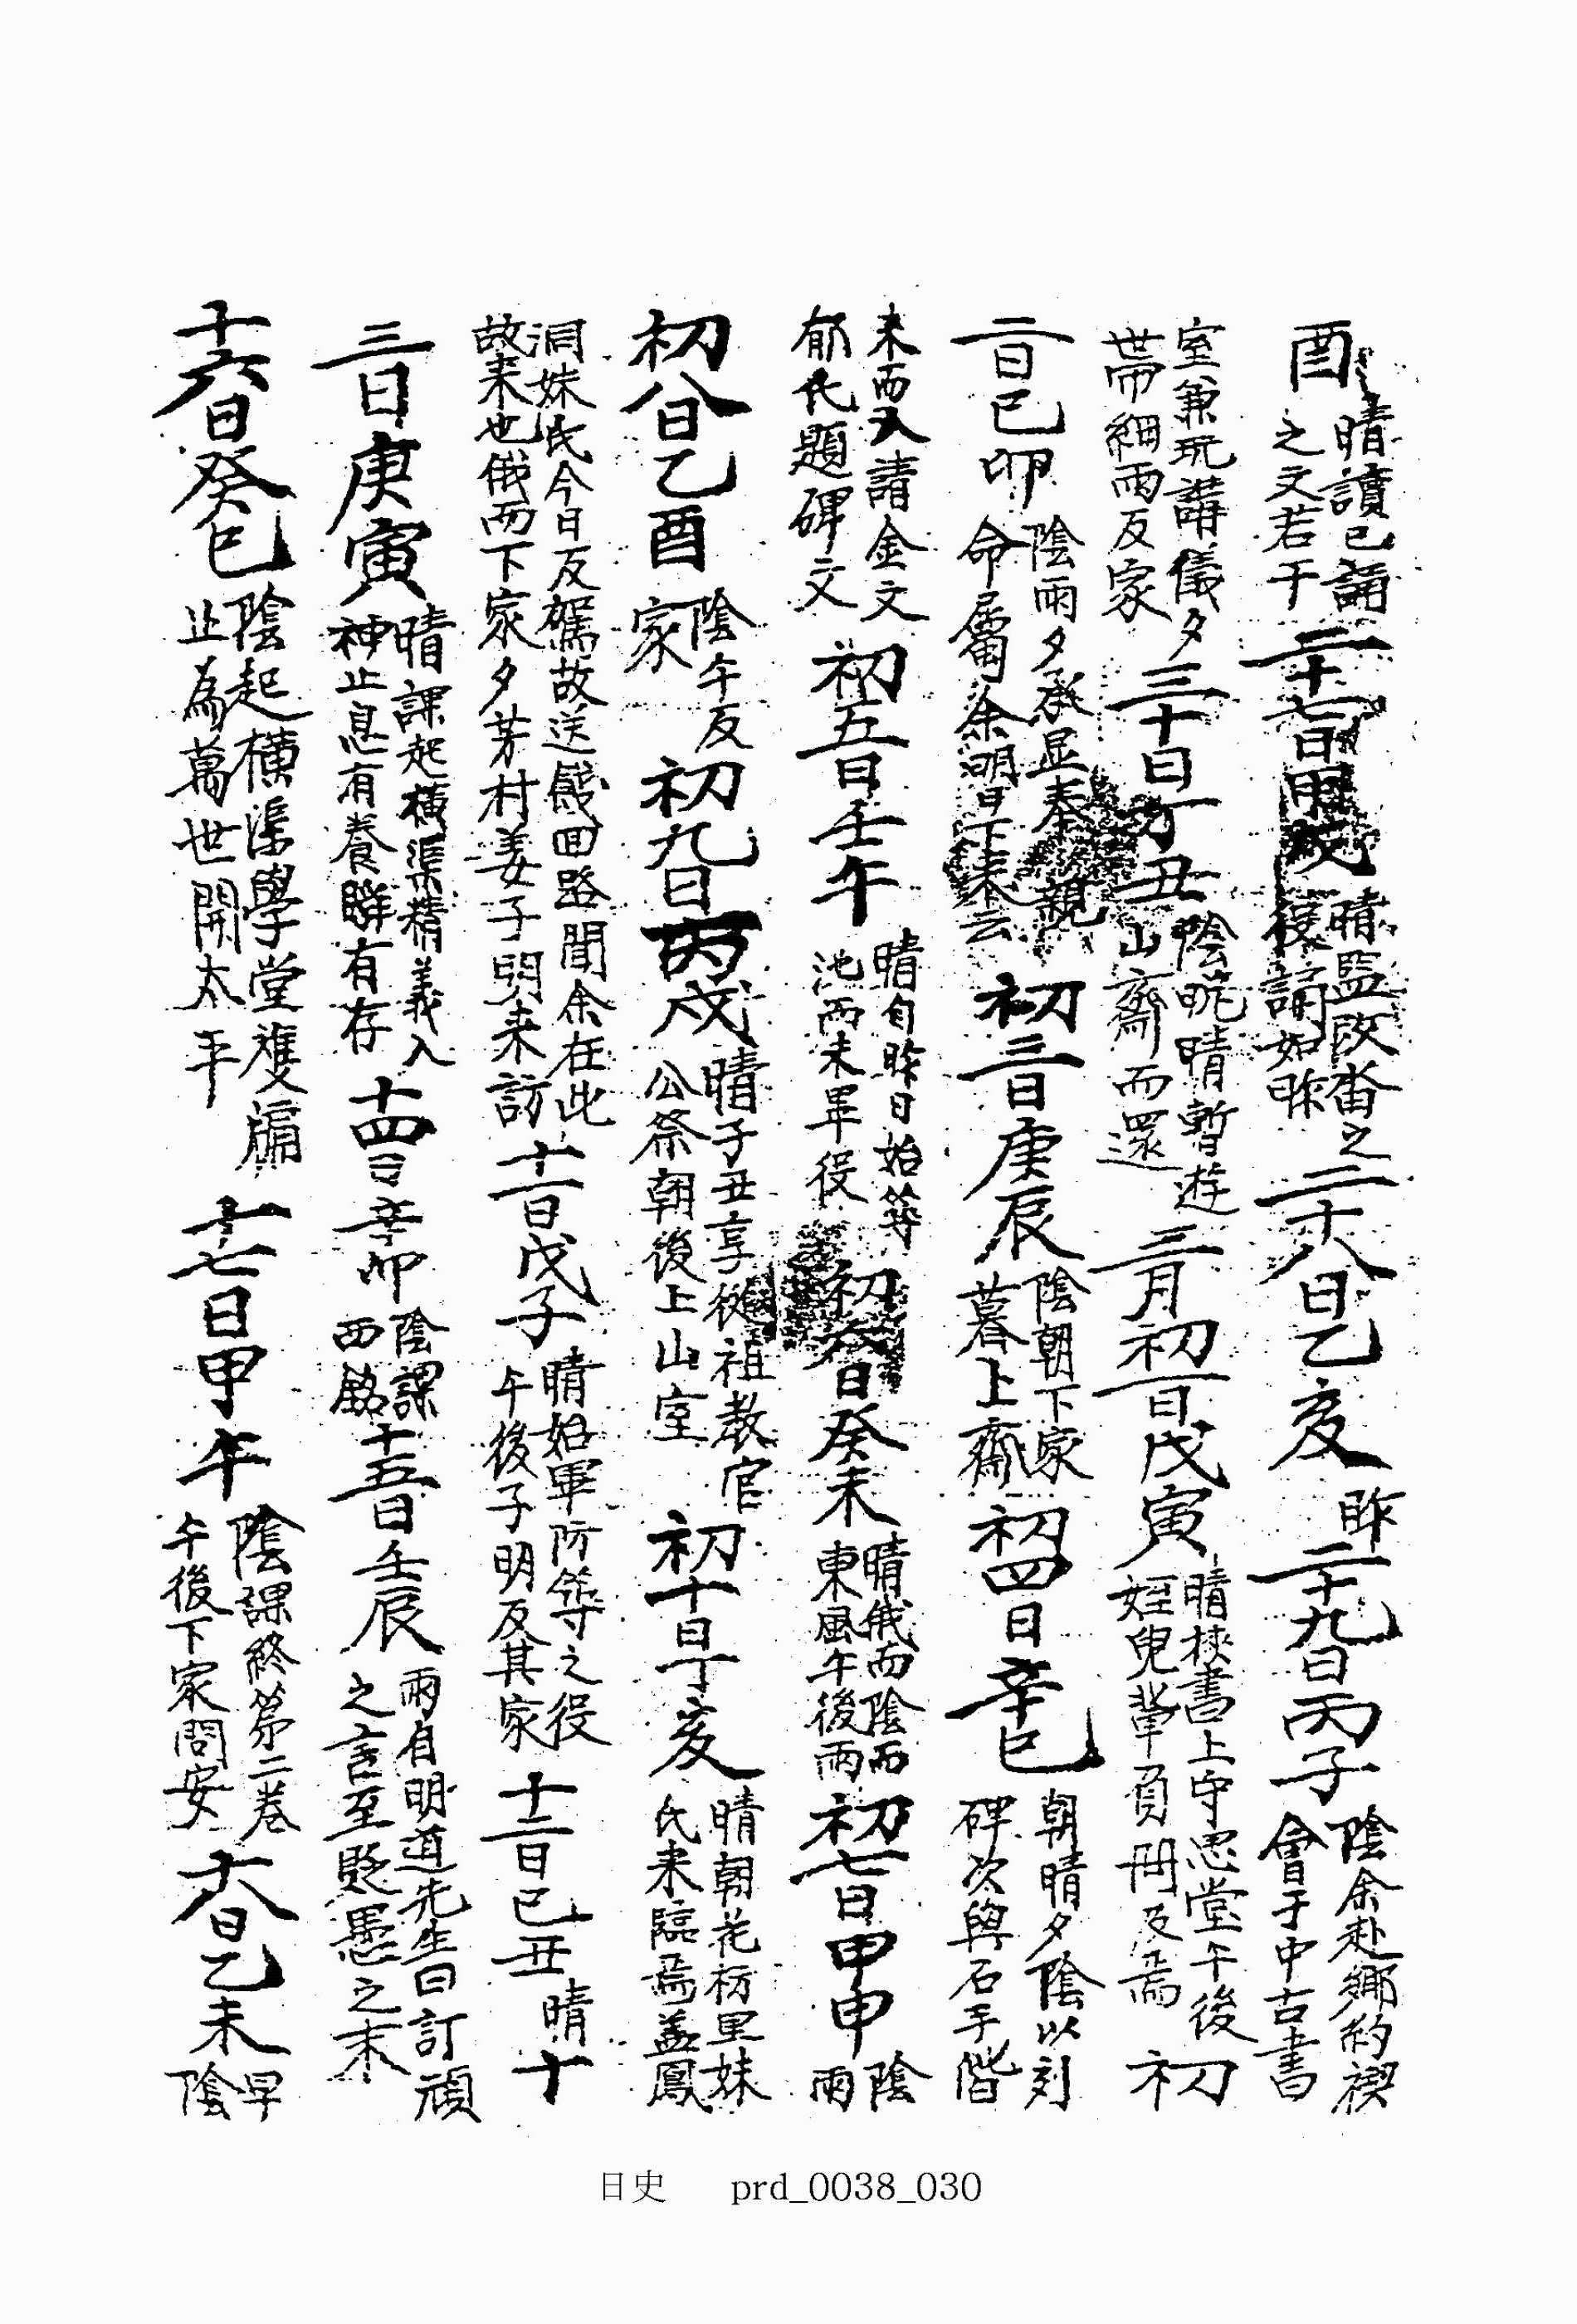 酉 晴讀已誦之文若干 二十七日甲戌 晴監改畓之後誦如昨 二十八日乙亥 昨 二十九日丙子 陰余赴鄉約禊會于中古書
室兼玩講儀夕帶細雨反家 三十日丁丑 陰晩晴暫遊山齋而還 三月初一日戊寅 晴挾書上守思堂午後姪兒輩負冊及焉 初
二日己卯 陰雨夕承显奉親命屬余明日下来云 初三日庚辰 陰朝下家暮上齋 初四日辛巳 朝晴夕陰以刻碑次與石手偕
来而又請金文郁氏題碑文 初五日壬午 晴自昨日始等池而未畢役 初六日癸未 晴俄而陰而東風午後雨 初七日甲申 陰雨
初八日乙酉 陰午反家 初九日丙戌 晴子丑享從祖教官公祭朝後上山室 初十日丁亥 晴朝花枋里妹氏来臨焉盖鳳
洞妹氏今日反駕故送餞回路聞余在此故来也俄而下家夕芳村姜子明来訪 十一日戊子 晴始軍防等之役午後子明反其家 十二日己丑 晴 十
三日庚寅 晴課起橫渠精義入神止息有養瞬有存 十四日辛卯 陰課西銘 十五日壬辰 雨自明道先生曰訂頑之言至貶愚之末
十六日癸巳 陰起橫渠學堂雙牖止為萬世開太平 十七日甲午 陰課終第二卷午後下家問安 十八日乙未 早陰
日史 prd_0038_030